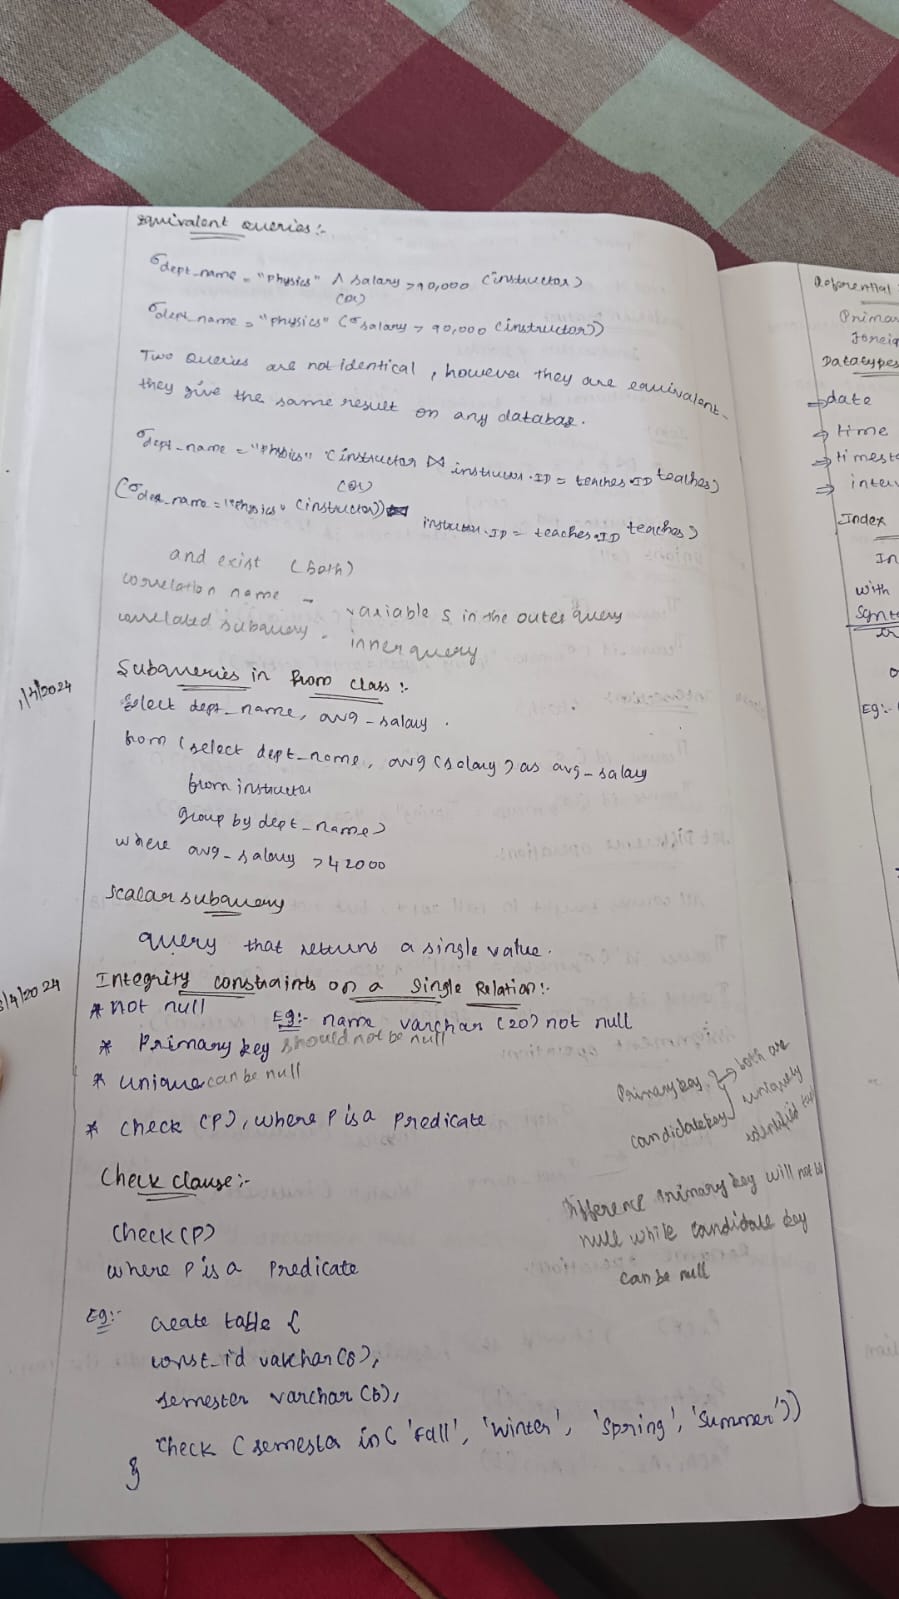 Equivalent Queries:-
σdept_name = "Physics" ∧ salary > 90,000 (instructor)
(or)
σdept_name = "physics" (σsalary > 90,000 (instructor))
Two Queries are not identical, however they are equivalent-
they give the same result on any databas.
σdept_name = "Physics" (instructor ⋈ instructor.ID = teaches.ID teaches)
(or)
(σdept_name = "Physics" (instructor)) ⋈ instructor.ID = teaches.ID teaches)
and exist (both)
correlation name - variable s in the outer query
correlated subquery - inner query
Subqueries in from class :-
/4/2024
select dept_name, avg_salary.
from (select dept_name, avg(salary) as avg_salary
from instructor
group by dept_name)
where avg_salary > 42000
scalar subquery
query that returns a single value.
/4/2024
Integrity constraints on a Single Relation:-
* not null
Eg:- name varchar (20) not null
* Primary key should not be null
* unique can be null
* check (P), where P is a Predicate
Primary key } → both are
candidate key uniquely
identified
Check clause:-
Difference primary key will not be
null while candidate key
can be null
Check (P)
where P is a Predicate
Eg:- create table {
const_id varchar(8),
semester varchar (6),
check (semester in ('Fall', 'Winter', 'Spring', 'Summer'))
}
Referential
Prima
foreig
Datatypes
⇒ date
⇒ time
⇒ timest
⇒ inter
Index
In
with
Synt
Eg:-